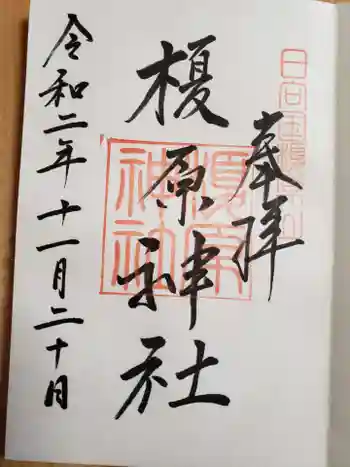 奉拝
日向国榎原神社
榎原神社
榎原神社
令和二年十一月二十日